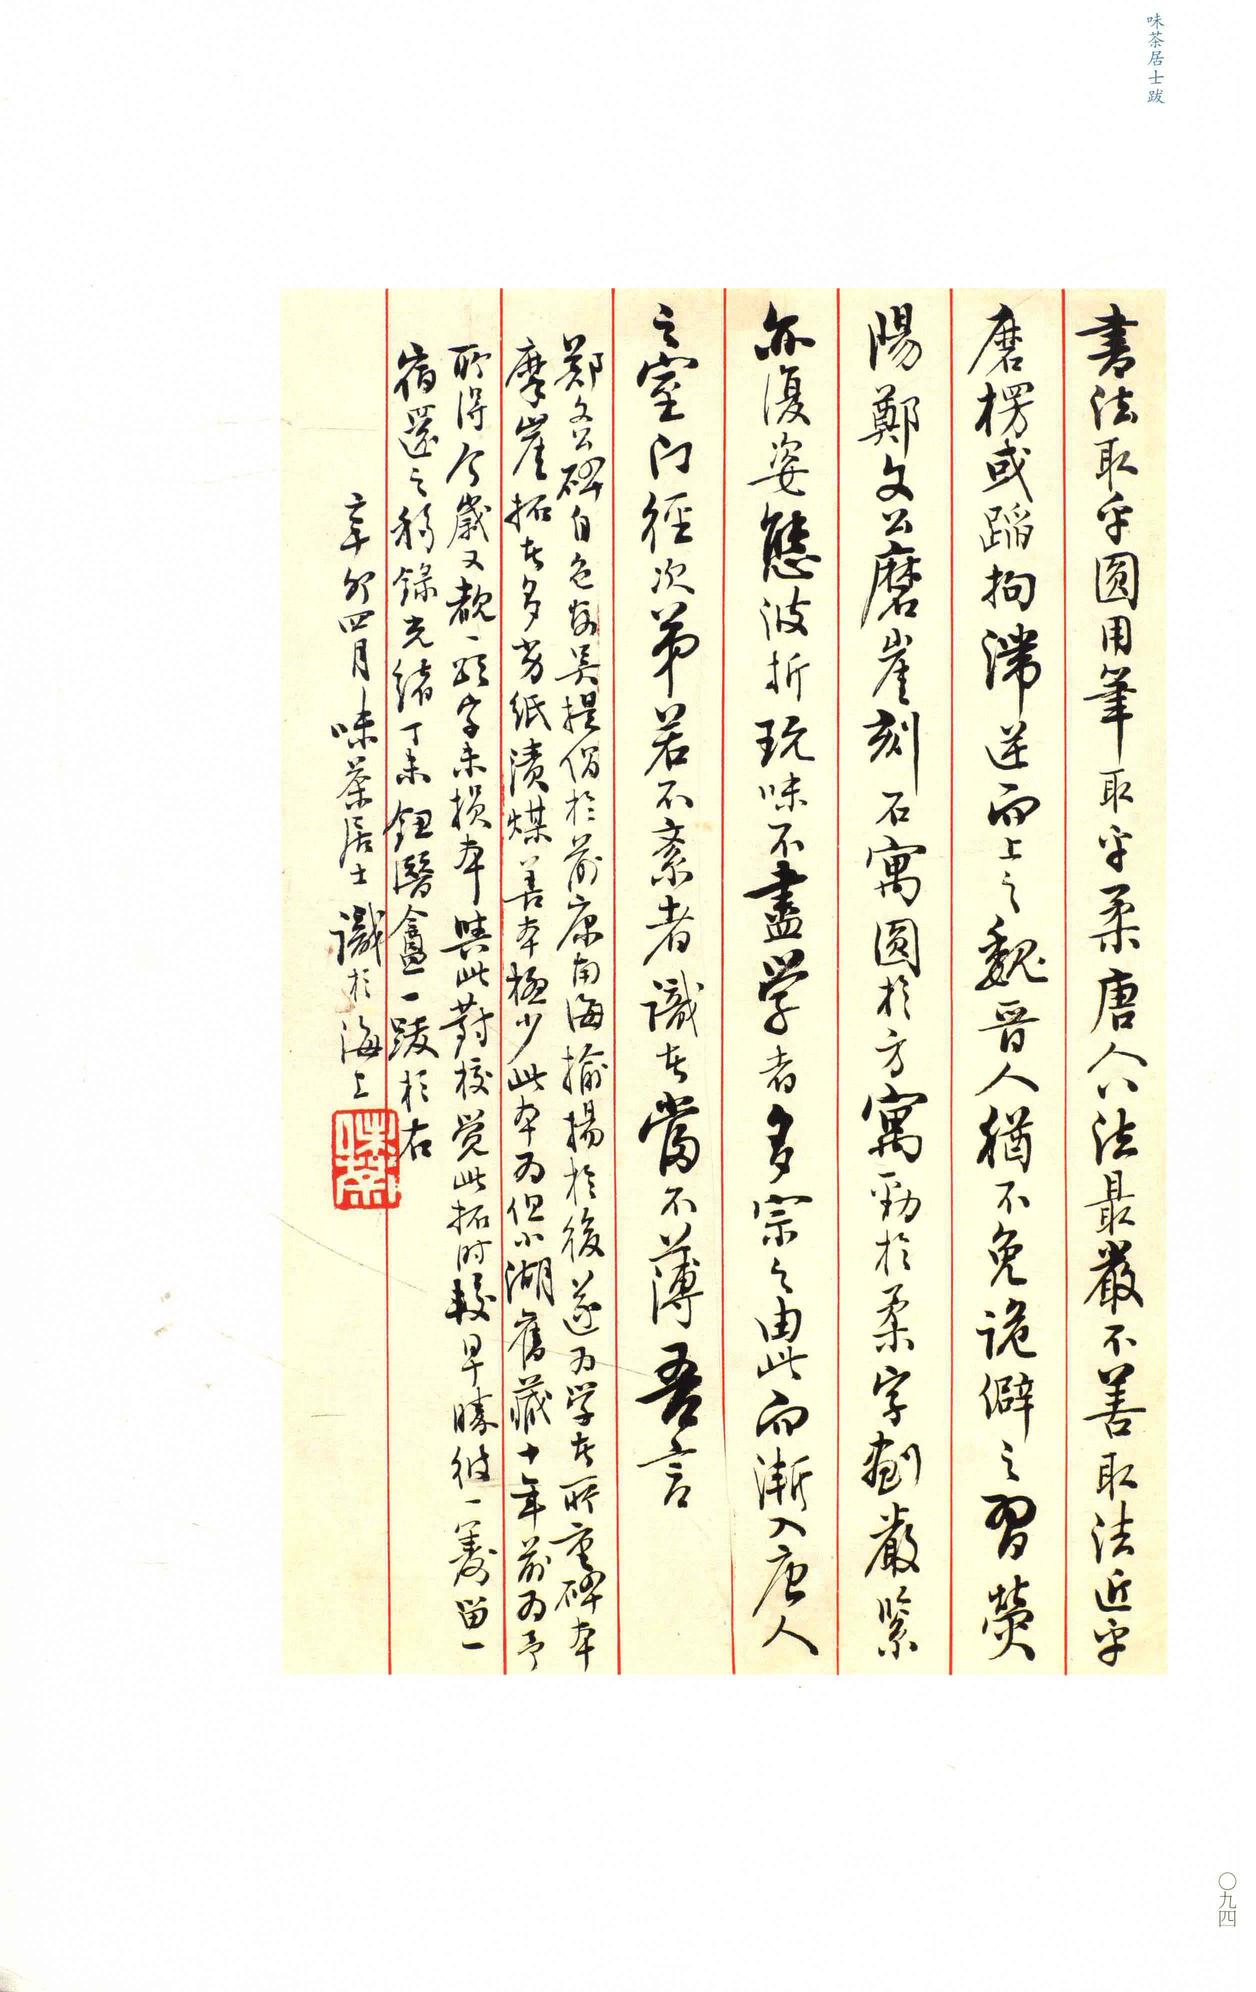 味茶居士跋
書法取乎圓用筆取乎柔唐人八法最嚴不善取法近乎
磨楞或蹈拘滯逆而上之魏晉人猶不免詭僻之習熒
陽鄭文公磨崖刻石寓圓於方寓勁於柔字劃嚴緊
亦復姿態波折玩味不盡學者多宗之由此而漸入唐人
之室门徑次第若不紊者識者當不薄吾言
鄭文公碑自包安吴提倡於前康南海揄揚於後遂为学者所重碑本
摩崖拓者多劣紙漬煤善本極少此本为但小湖舊藏十年前为予
所得今歲又覩一頌字未損本與此對校覺此拓时較早勝彼一籌留一
宿還之移錄光緒丁未鈕匋盦一跋於右
辛卯四月味茶居士識於海上
味茶
〇九四